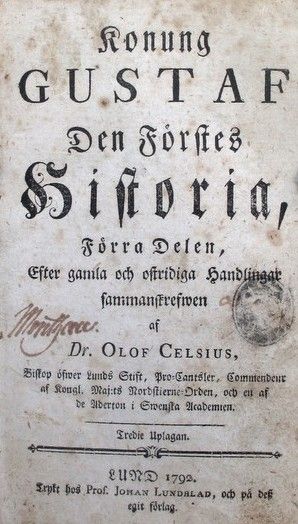 Konung
GUSTAF
Den Förstes
Historia,
Förra Delen,
Efter gamla och ostridiga Handlingar
sammanskrefwen
af
Dr. OLOF CELSIUS,
Biskop öfwer Lunds Stift, Pro-Cantsler, Commendeur
af Kongl. Maj:ts Nordstierne-Orden, och en af
de Aderton i Swenska Academien.
Tredie Uplagan.
LUND 1792.
Trykt hos Prof. JOHAN LUNDBLAD, och på deß
egit förlag.